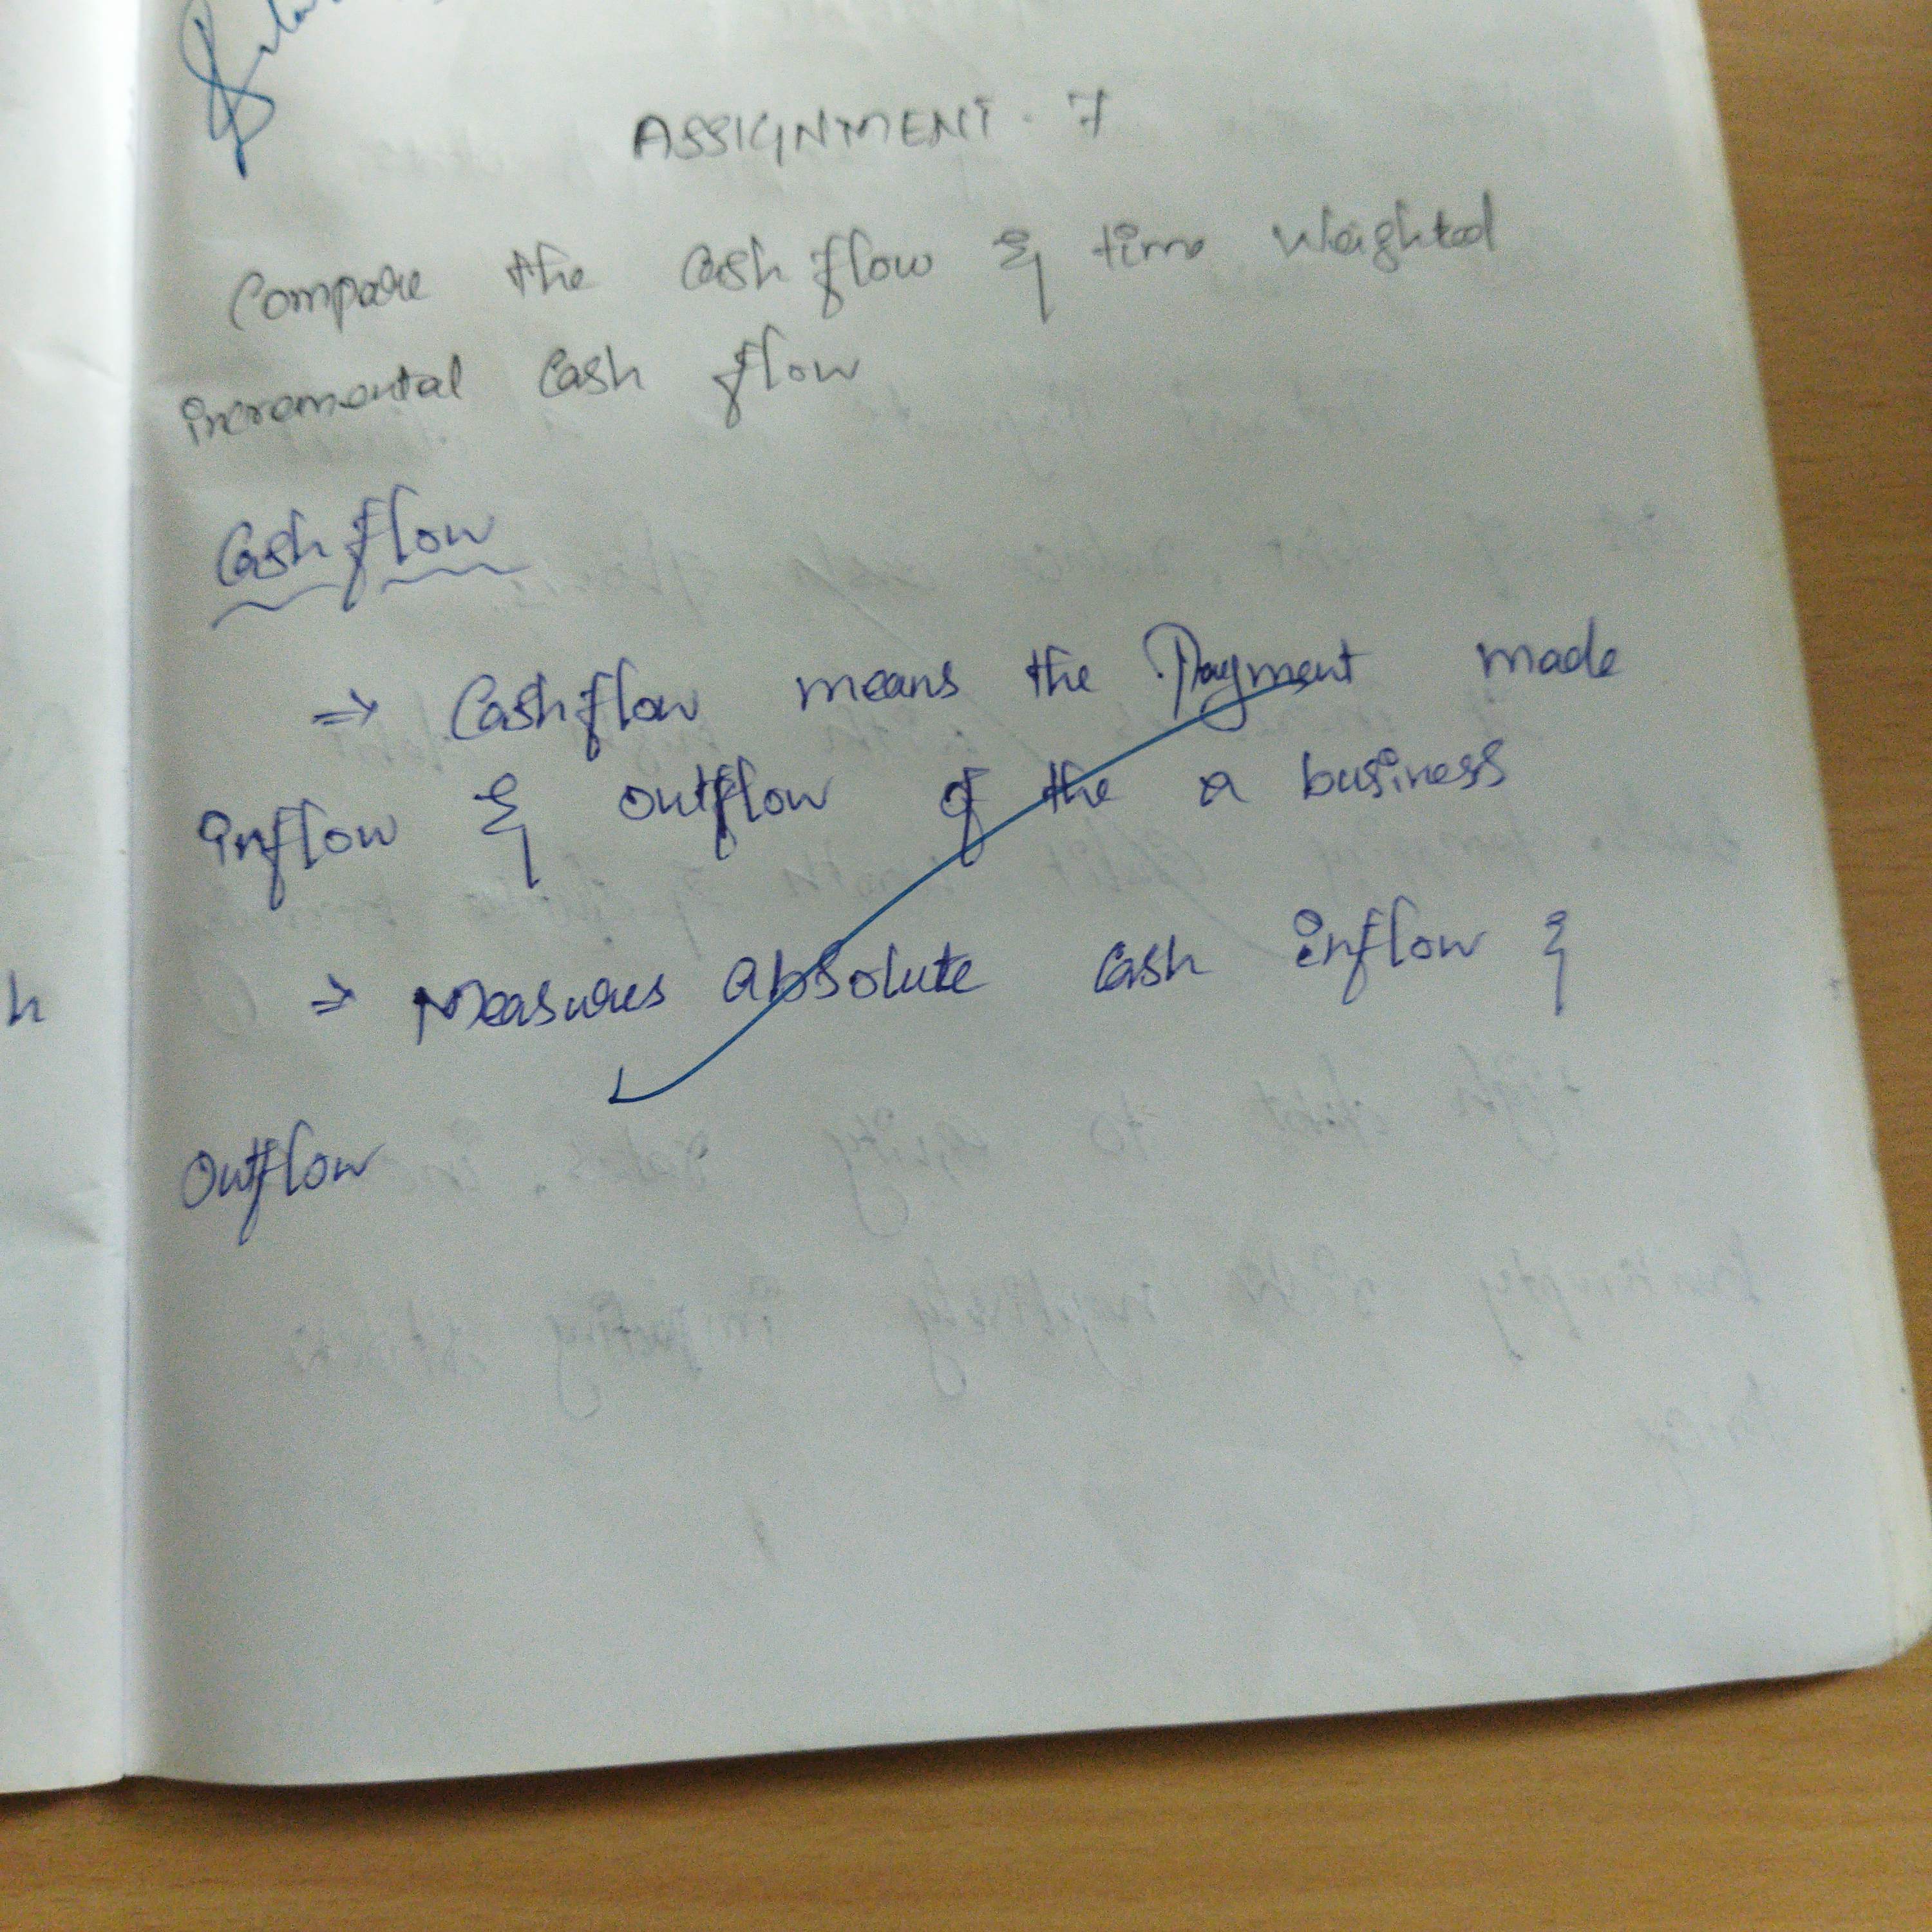 ASSIGNMENT. 7
Compare the Cash flow & time weighted
incremental Cash flow
Cash flow
⇒ Cashflow means the Payment made
inflow & outflow of the a business
⇒ Measures absolute cash inflow &
Outflow
h